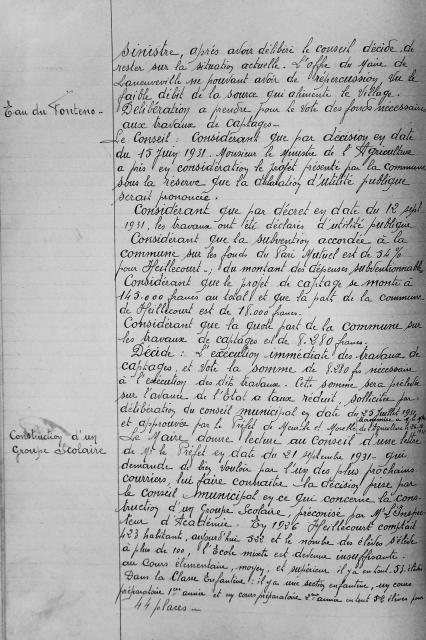 sinistre, après avoir délibéré le conseil décide de
rester sur la situation actuelle. L'offre du Maire de
Laneuveville ne pouvant avoir de répercussion, vu le
faible débit de la source qui alimente le village.
Eau du Fonteno -
Délibération a prendre pour le vote des fonds nécessaires
aux travaux de captages -
Le Conseil : Considérant que par décision en date
du 15 juin 1931. Monsieur le Ministre de l'Agriculture
a pris en considération le projet présenté par la commune
sous la réserve que la déclaration d'utilité publique
serait prononcée.
Considérant que par décret en date du 12 sept
1931, les travaux ont été déclarés d'utilité publique
Considérant que la subvention accordée à la
commune sur les fonds du Pari Mutuel est de 54%
pour Heillecourt -, du montant des dépenses subventionnables
Considérant que le projet de captage se monte à
145.000 francs au total et que la part de la commune
de Heillecourt est de 18.000 francs.
Considérant que la quote part de la commune sur
les travaux de captages est de 8.280 francs.
Décide : L'exécution immédiate des travaux de
captages, et vote la somme de 8.280 frs nécessaire
à l'exécution des dits travaux. Cette somme sera prélevée
sur l'avance de l'Etat a taux réduit, sollicitée par
délibération du conseil municipal en date du 25 juillet 1931
et approuvée par le Préfet de Meurthe et Moselle,
Construction d'un
Groupe Scolaire
Le Maire, donne lecture au Conseil d'une lettre
de Mr le Préfet en date du 21 septembre 1931 - qui
demande de bien vouloir par l'un des plus prochains
courriers, lui faire connaître la décision prise par
le conseil municipal en ce qui concerne la cons-
truction d'un Groupe Scolaire, préconisé par Mr l'Inspec-
teur d'Académie. En 1926 Heillecourt comptait
423 habitants, aujourd'hui 522 et le nombre des élèves s'élève
à plus de 100, l'Ecole mixte est devenue insuffisante.
au cours élémentaire, moyen, et supérieur il y a en tout 53
Dans la Classe Enfantine : il y a une section enfantine, un cours
préparatoire 1ère année et un cours préparatoire 2me année en tout 52 élèves pour
44 places -